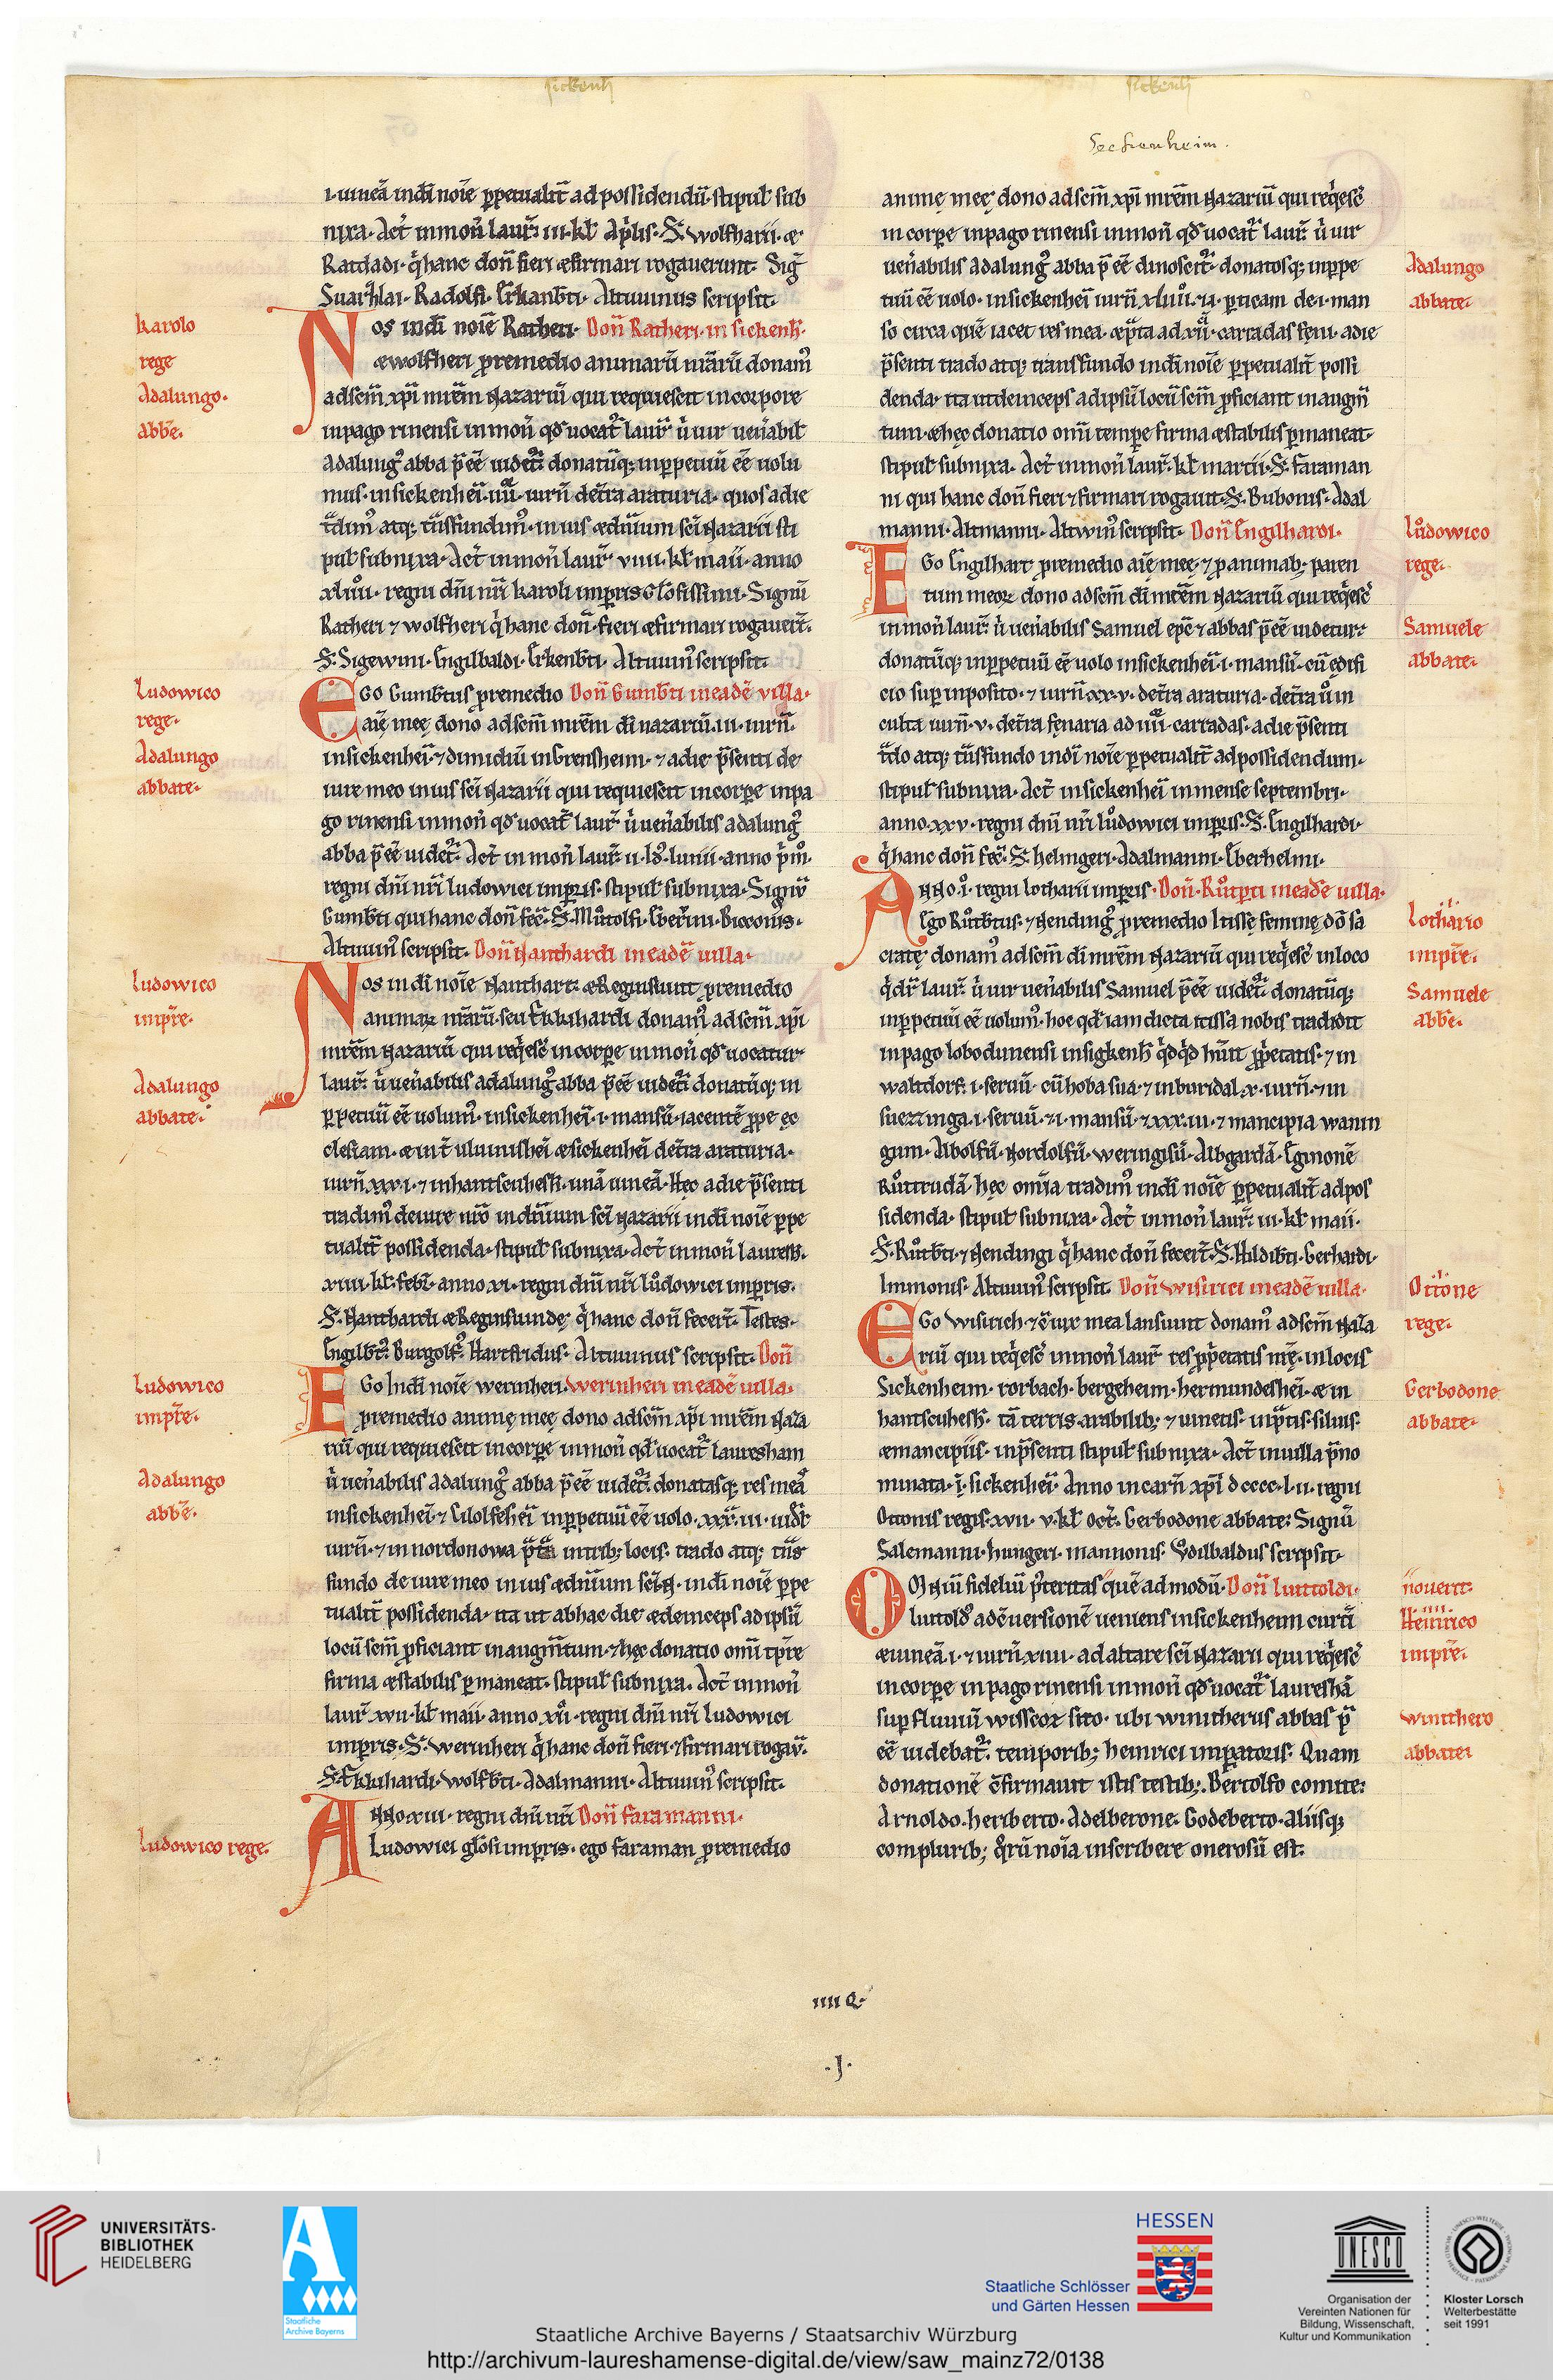 sickenh̄
sickenh̄
Seckenheim.
i. uineā in dī noīe ꝑpetualiť ad possidendū. stipuł sub
nixa. Acť in moñ lauꝛ̄. iii. kł. Apľis. S. Wolfharii. &
Ratdadi. q̇ hanc doñ fieri & firmari rogauerunt. Sig̅
Radolfi. Erkanb̄ti. Altuuinus scripsit.
karolo
rege
Adalungo.
abb̄e.
Nos in dī noīe Ratheri. Doñ Ratheri. in sickenh̄.
& wolfheri ꝓ remedio animarū nr̄arū donam᷒
ad sc̄m xp̄i mr̄em Nazariū qui requiescit in corpore
in pago rinensi in moñ qd̄ uocať lauꝛ̄ u̇ uir ueñabił
Adalung᷒ abba p̄ eē uideť. donatūq; in ꝑpetuū eē uolu
mus. in sickenheī. iiii. iurñ det̄ra araturia. quos a die
t̄dim᷒ atq; t̄nsfundim᷒. in ius & dn̄ium sc̄i Nazarii sti
puł subnixa. Acť in moñ lauꝛ̄ viiii. kł. maii. anno
xluii. regni dn̄i nr̄i karoli imp̄ris glōsissimi. Signū
Ratheri ⁊ wolfheri q̇ hanc doñ. fieri & firmari rogauer̄t.
S. Sigewini. Engilbaldi. Erkenb̄ti. Altuuin᷒ scripsit.
Ludowico
rege.
Adalungo
abbate.
Ego Gumb̄tus ꝓ remedio Doñ Gumb̄ti in eadē villa.
aīę meę dono ad sc̄m mr̄em dī nazariū. iii. iurñ.
in sickenheī. ⁊ dimidiū in Grensheim. ⁊ a die p̄senti de
iure meo in ius sc̄i Nazarii qui requiescit in corꝑe in pa
go rinensi in moñ qd̄ uocať lauꝛ̄ u̇ ueñabilis adalung᷒
abba p̄ eē uideť. Acť in moñ lauꝛ̄ ii. Id᷒. Iunii. anno p̄m᷒.
regni dn̄i nr̄i ludowici imp̄ris. stipuł subnixa. Signū
Gumb̄ti qui hanc doñ fec̄. S. Můtolfi. Ebeꝛ̄ini. Bicconis.
Altuuin᷒ scripsit. Doñ Nanthardi in eadē uilla.
Ludowico
imp̄re.
Adalungo
abbate.
Nos in dī noīe Nanthart. & Reginsuint ꝓ remedio
animaꝝ nr̄arū. seu Ekkihardi donam᷒ ad sc̄m xp̄i
mr̄em Nazariū qui req̇esc̄ in corꝑe in moñ qd̄ uocatur
lauꝛ̄. u̇ ueñabilis adalung᷒ abba p̄ eē uideť. donatūq; in
ꝑpetuū eē uolum᷒. in sickenheī. i. mansū. iacentē ꝓpe ęc
clesiam. & int̄ uluinisheī & sickenheī det̄ra araturia.
iurñ xxx.i. ⁊ in hantscuhesh̄. unā uineā. Hęc a die p̄senti
tradim᷒ de iure nr̄o in dn̄ium sc̄i Nazarii in dī noīe ꝑpe
tualiť possidenda. stipuł subnixa. Acť in moñ lauresh̄.
xiiii. kł. febꝛ̄. anno xi. regni dn̄i nr̄i lůdowici imp̄ris.
S. Nanthardi & Reginsuindę q̇ hanc doñ fecer̄t. Testes.
Engilb̄t. Burgolf᷒. Hartfridus. Altuuinus scripsit. Doñ
Ludowico
imp̄re.
Adalungo
abb̄e.
Ego In dī noīe werinheri. Werinheri in eadē uilla.
ꝓ remedio animę meę dono ad sc̄m xp̄i mr̄em Naza
riū qui requiescit in corꝑe in moñ qd̄ uocať lauresham
u̇ ueñabilis Adalung᷒ abba p̄ eē uideť. donatasq; res meas
in sickenheī. ⁊ Wolfesheī in ꝑpetuū eē uolo. xxx.iii.
iurñ. ⁊ in nordonowa p̄ta in trib; locis. trado atq; t̄ns
fundo de iure meo in ius & dn̄ium sc̄i N. in dī noīe ꝑpe
tualiť possidenda. ita ut ab hac die & deinceps ad ipsū
locū sc̄m ꝓficiant in augm̄tum. ⁊ hęc donatio omī tp̄re
firma & stabilis ꝑmaneat. stipuł subnixa. Acť in moñ
lauꝛ̄ xvii. kł. maii. anno xii. regni dn̄i nr̄i ludowici
imp̄ris. S. werinheri q̇ hanc doñ fieri. ⁊ firmari rogau̅.
S. Ekkihardi. wolfb̄ti. Adalmanni. Altuuin᷒ scripsit.
Ludowico rege.
Anno xiii. regni dn̄i nr̄i Doñ faramanni.
Ludowici glōsi imp̄ris. ego faraman ꝓ remedio
animę meę dono ad sc̄m xp̄i mr̄em Nazariū qui req̇esc̄
in corꝑe in pago rinensi in moñ qd̄ uocať lauꝛ̄. u̇ uir
ueñabilis Adalung᷒ abba p̄ eē dinosciť. donatosq; in ꝑpe
tuū eē uolo. in sickenheī iurñ xluii. ⁊ i. ꝑticam de .i. man
so circa quē iacet res mea. & p̄ta ad xii. carradas fęni. a die
p̄senti trado atq; transfundo in dī noīe ꝑpetualiť possi
denda. ita ut deinceps ad ipsū locū sc̄m ꝓficiant in augm̄
tum. & hęc donatio omī tempe firma & stabilis ꝑmaneat.
stipuł subnixa. Acť in moñ lauꝛ̄. kł. martii. S. faraman
ni qui hanc doñ fieri ⁊ firmari rogauit. S. Bubonis. Adal
manni. Altmanni. Altwin᷒ scripsit. Doñ Engilhardi.
Adalungo
abbate.
Lůdowico
rege.
Samuele
abbate.
Ego Engilhart ꝓ remedio aīę meę. ⁊ ꝓ animab; paren
tum meoꝝ dono ad sc̄m dī mr̄em Nazariū qui req̇esc̄
in moñ lauꝛ̄. u̇ ueñabilis Samuel epc̄ ⁊ abbas p̄ eē uidetur.
donatūq; in ꝑpetuū eē uolo in sickenheī. i. mansū. cū ędifi
cio sup inposito. ⁊ iurñ xx.v. det̄ra araturia. det̄ra u᷒ in
culta iurñ. v. det̄ra fęnaria ad iiii. carradas. a die p̄senti
t̄do atq; t̄nsfundo in dī noīe ꝑpetualiť ad possidendum.
stipuł subnixa. Acť in sickenheī in mense septembri.
anno xxv. regni dn̄i nr̄i lůdowici imp̄ris. S. Engilhardi.
q̇ hanc doñ fec̄. S. helmgeri. Adalmanni. Eberhelmi.
Anno .i. regni lotharii imp̄ris. Doñ. Růtp̄ti in eadē uilla.
Ego Růtb̄tus. ⁊ Nending᷒ ꝓ remedio Itissę feminę dō sa
cratę donam᷒ ad sc̄m dī mr̄em Nazariū qui req̇esc̄ in loco
q̇ dꝛ̄ lauꝛ̄. u̇ uir ueñabilis Samuel p̄ eē uideť. donatūq;
in ꝑpetuū eē uolum᷒. hoc qd̄ iam dicta itissa nobis tradidit
in pago lobodunensi in sigkenh̄ q̇dq̇d hūit ꝓp̄etatis. ⁊ in
waltdorf. i. seruū. cū hoba sua. ⁊ in buridal. x. iurñ. ⁊ in
suezzinga. i. seruū. ⁊ i. mansū. ⁊ xxx.iii. ⁊ mancipia wanin
gum. Abolfū. Nordolfū. weringisū. Albgardā. Eginonē
Růttrudā. hęc om̄ia tradim᷒ in dī noīe ꝑpetualiť ad pos
sidenda. stipuł subnixa. Acť in moñ lauꝛ̄. iii. kł. maii.
S. Růtb̄ti. ⁊ Nendingi q̇ hanc doñ fecer̄t. S. Hildib̄ti. Gerhardi.
Immonis. Altuuin᷒ scripsit. Doñ wisirici in eadē uilla.
Lothario
imp̄re.
Samuele
abb̄e.
Ottone
rege.
Gerbodone
abbate.
Ego wisirich. ⁊ c̄iux mea lansuint donam᷒ ad sc̄m Naza
riū qui req̇esc̄ in moñ lauꝛ̄ res ꝓp̄etatis nr̄ę. in locis
Sickenheim. rorbach. bergeheim. hermundesheī. & in
hantscuhesh̄. tā terris arabilib; ⁊ uineis. in p̄tis. siluis.
& mancipiis. in p̄senti stipuł subnixa. Acť in uilla p̄no
minata. i. sickenheī. Anno incarñ xp̄i dcccc.l.ii. regni
Ottonis regis. xvii. v. kł. Oct̄. Gerbodone abbate. Signū
Salemanni. hungeri. mannonis. Uodilbaldus scripsit.
Omniū fideliū p̄teritas quē ad modū. Doñ Liuttoldi.
luttold᷒ ad c̄uersionē ueniens in sickenheim curtī
& uineā .i. ⁊ iurñ xiiii. ad altare sc̄i Nazarii qui req̇esc̄
in corꝑe in pago rinensi in moñ qd̄ uocať laureshā
sup fluuiū wisscoz sito. ubi winitherus abbas p̄
eē uidebať. temporib; heinrici imperatoris. Quam
donationē c̄firmauit istis testib;. Bertolfo comite.
Arnoldo. heriberto. Adelberone. Godeberto. Aliisq;
complurib; q̇rū noīa inscribere onerosū est.
nouerit.
Heinrico
imp̄re.
winithero
abbate.
iiii Q.
.J.
UNIVERSITÄTS-
BIBLIOTHEK
HEIDELBERG
Staatliche
Archive Bayerns
HESSEN
Staatliche Schlösser
und Gärten Hessen
UNESCO
Organisation der
Vereinten Nationen für
Bildung, Wissenschaft,
Kultur und Kommunikation
Kloster Lorsch
Welterbestätte
seit 1991
Staatliche Archive Bayerns / Staatsarchiv Würzburg
http://archivum-laureshamense-digital.de/view/saw_mainz72/0138